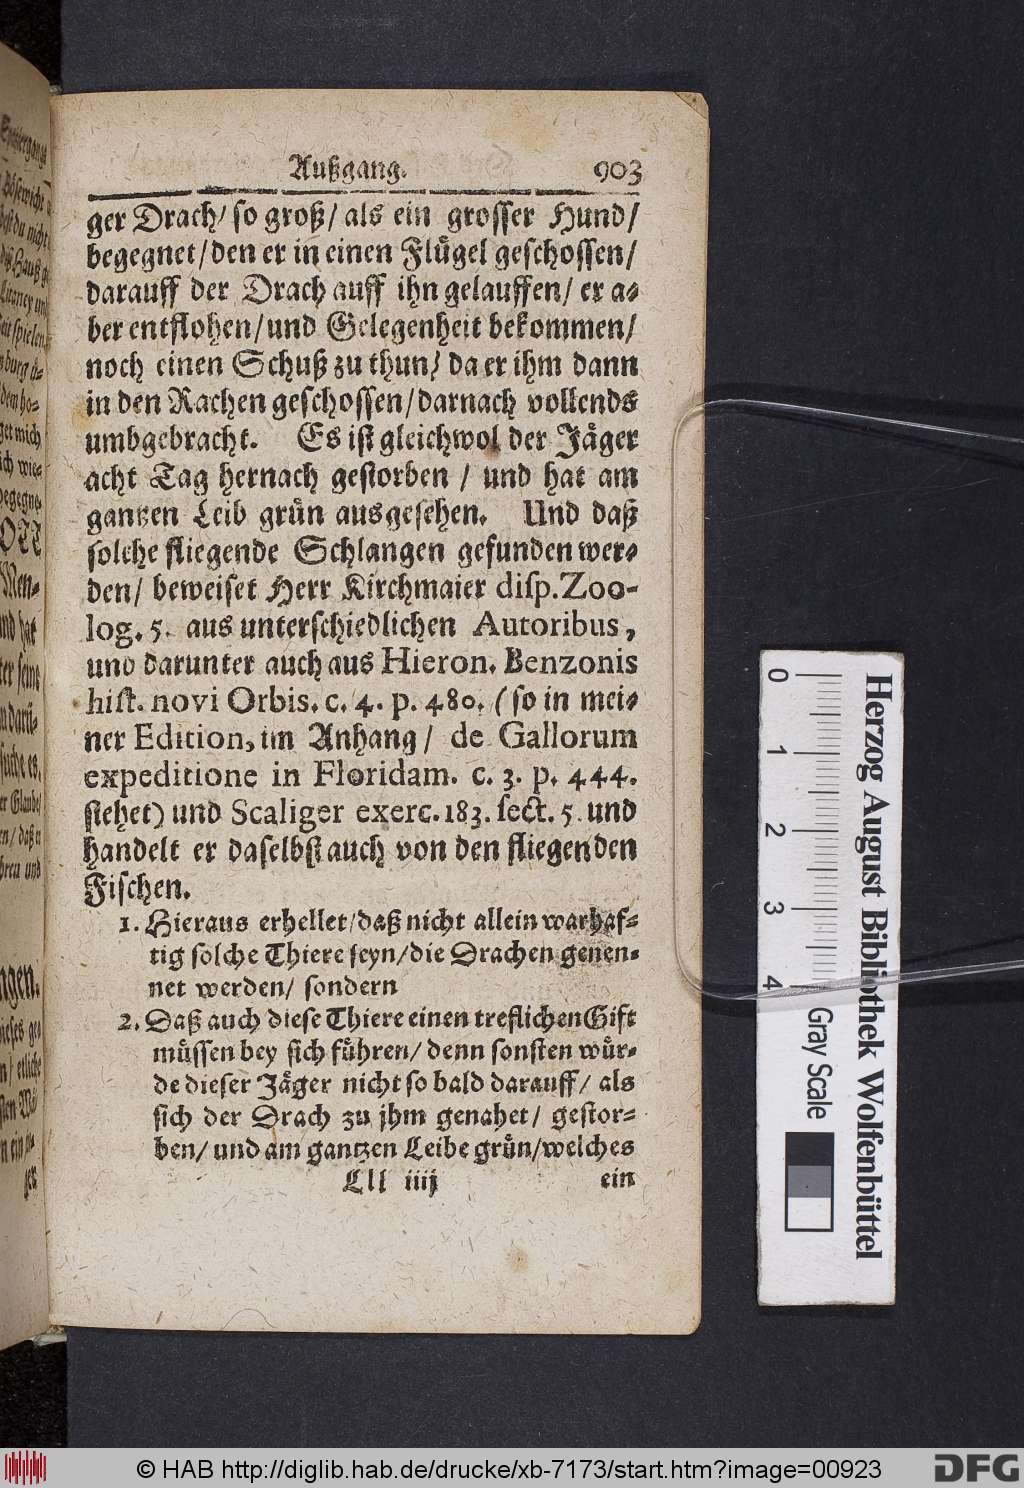 Außgang. 903
ger Drach/ so groß/ als ein grosser Hund/
begegnet/ den er in einen Flügel geschossen/
darauff der Drach auff ihn gelauffen/ er a-
ber entflohen/ und Gelegenheit bekommen/
noch einen Schuß zu thun/ da er ihm dann
in den Rachen geschossen/ darnach vollends
umbgebracht. Es ist gleichwol der Jäger
acht Tag hernach gestorben / und hat am
gantzen Leib grün ausgesehen. Und daß
solche fliegende Schlangen gefunden wer-
den/ beweiset Herr Kirchmaier disp. Zoo-
log. 5. aus unterschiedlichen Autoribus,
und darunter auch aus Hieron. Benzonis
hist. novi Orbis. c. 4. p. 480. (so in mei-
ner Edition, im Anhang/ de Gallorum
expeditione in Floridam. c. 3. p. 444.
stehet) und Scaliger exerc. 183. sect. 5. und
handelt er daselbst auch von den fliegenden
Fischen.
1. Hieraus erhellet/ daß nicht allein warhaf-
tig solche Thiere seyn/ die Drachen genen-
net werden/ sondern
2. Daß auch diese Thiere einen treflichen Gift
müssen bey sich führen/ denn sonsten wür-
de dieser Jäger nicht so bald darauff/ als
sich der Drach zu jhm genahet/ gestor-
ben/ und am gantzen Leibe grün/ welches
Lll iiij ein
0 1 2 3 4
Gray Scale
Herzog August Bibliothek Wolfenbüttel
© HAB http://diglib.hab.de/drucke/xb-7173/start.htm?image=00923
DFG